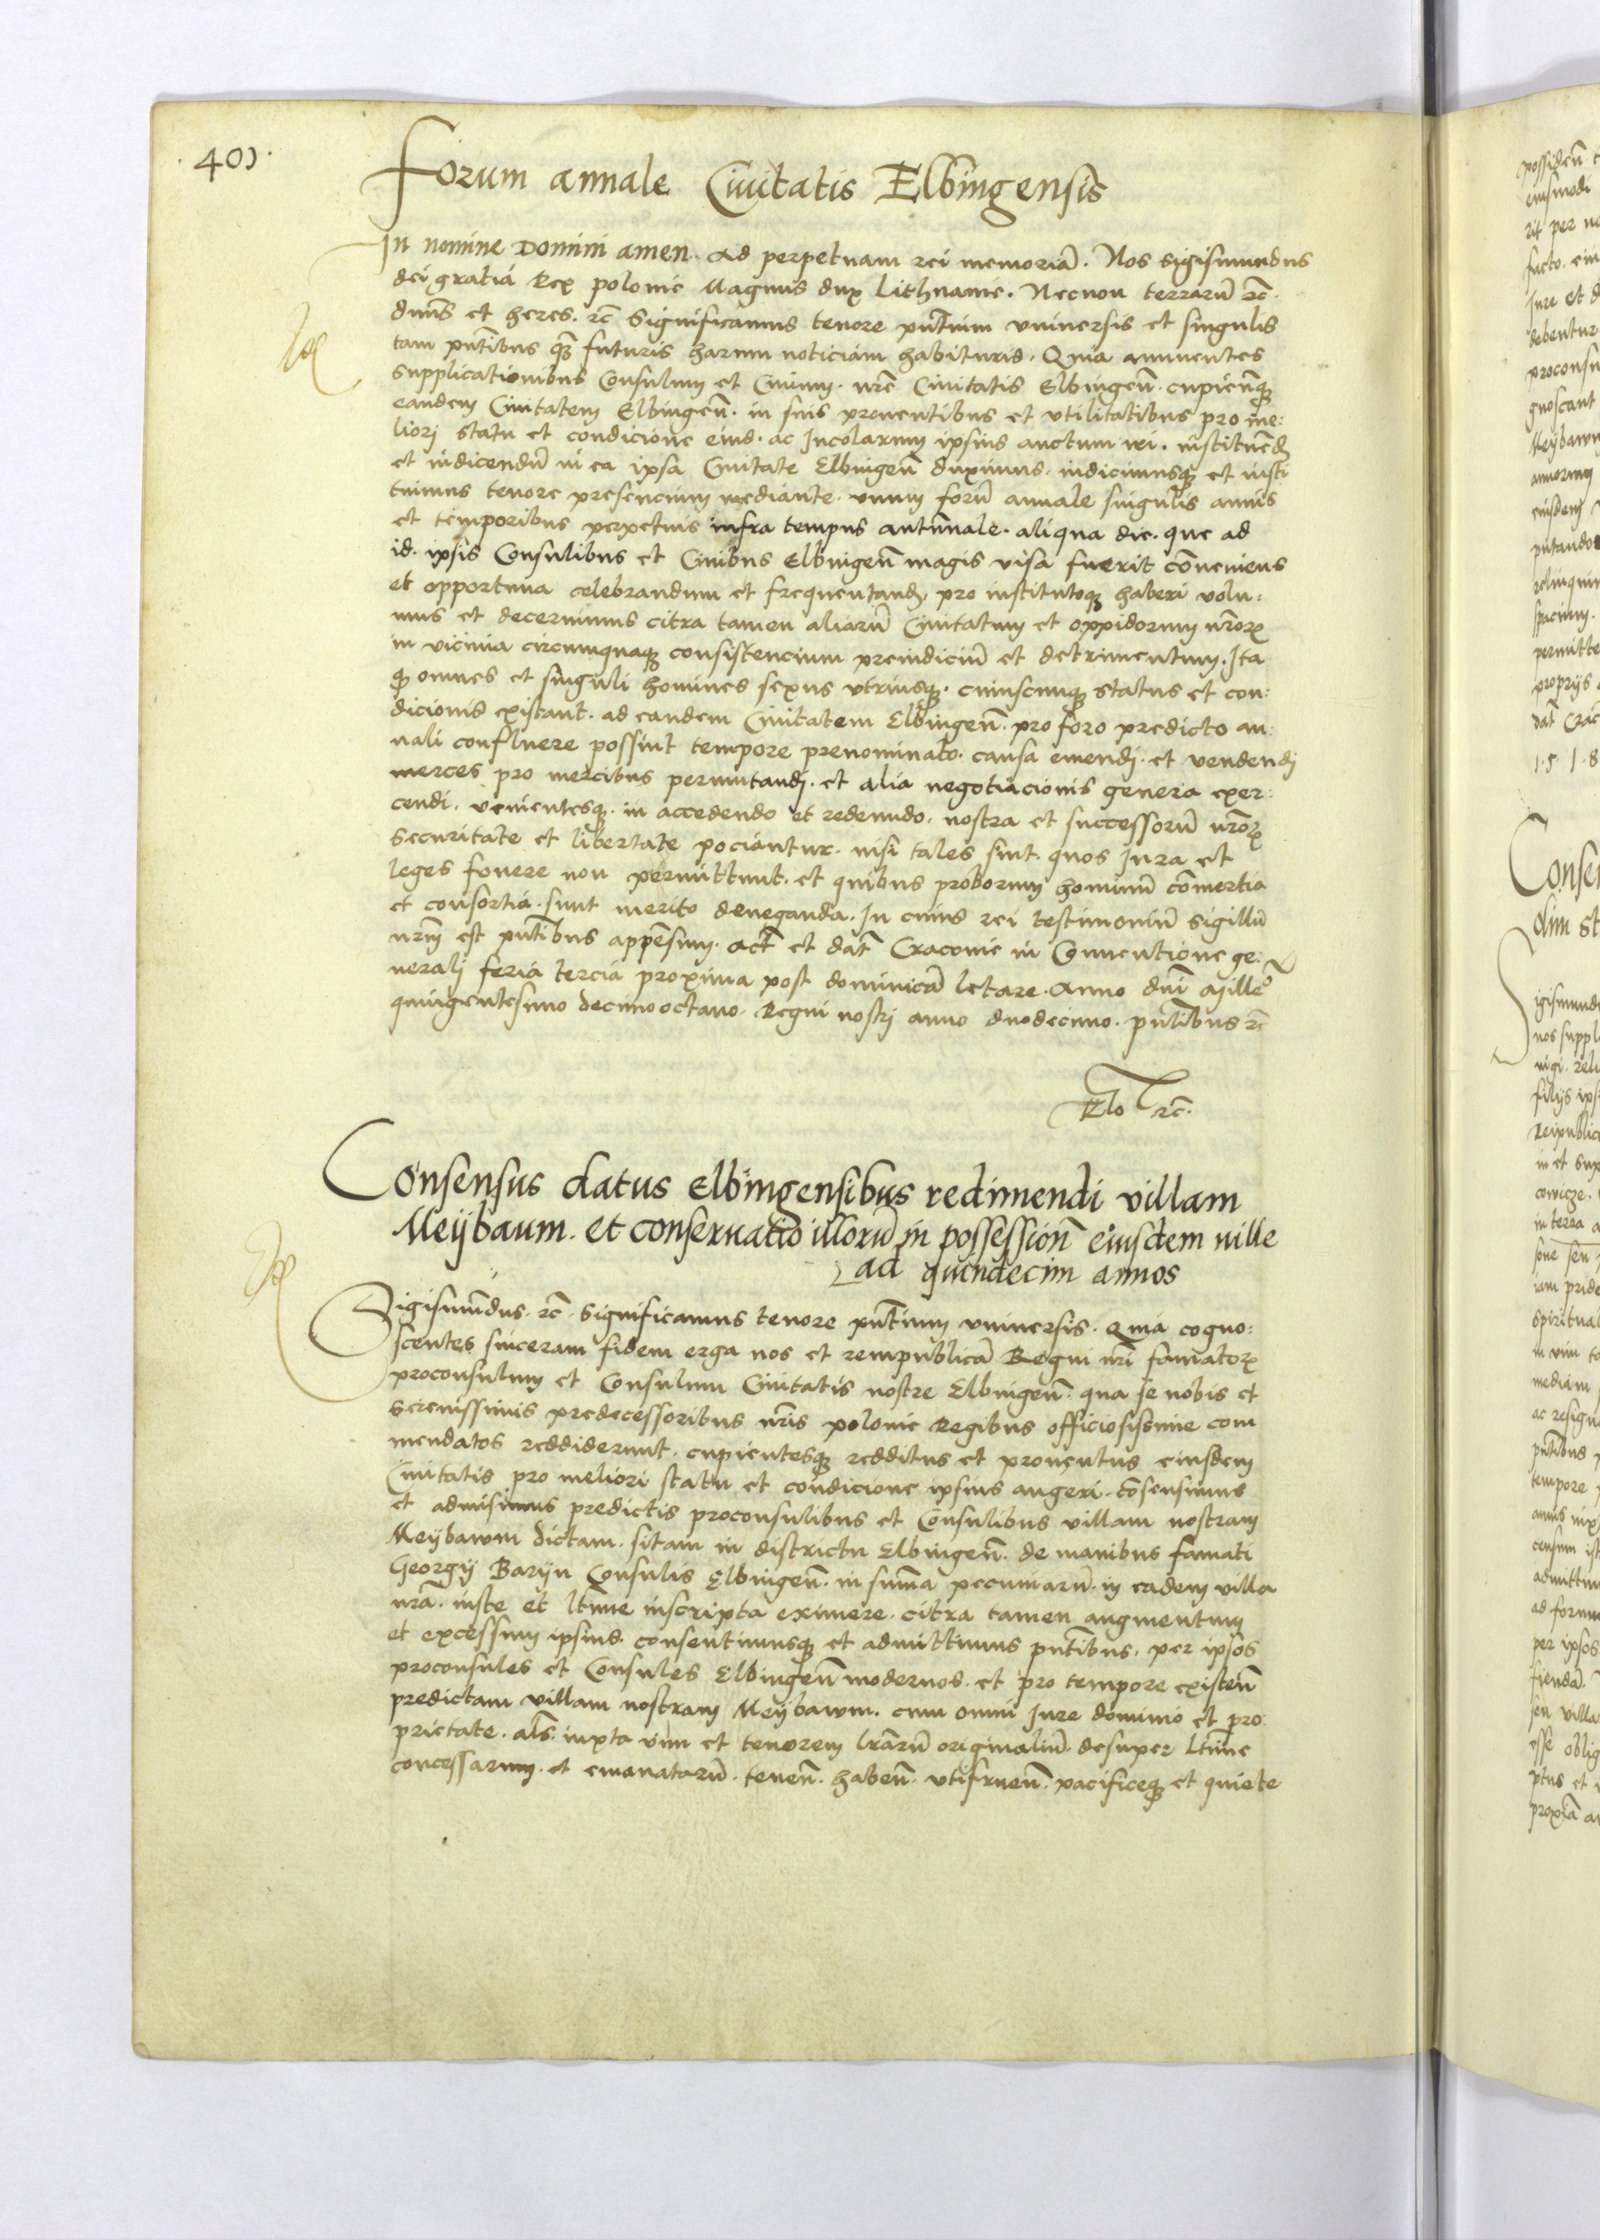 . 401 .
Forum annale Civitatis Elbingensis
In nomine Domini amen. Ad perpetuam rei memoriã. Nos Sigismundus
dei gratia Rex polonie Magnus dux Lithuanie. Necnon terrarũ rc̃.
dnũs et heres. rc̃ Significamus tenore pñtium vniuersis et singulis
tam pñtibus q̃ȝ futuris harum noticiam habituris. Quia annuentes
supplicationibus Consulum et Ciuium. nr̃e Ciuitatis Elbingeñ. cupieñqȝ
eandem Ciuitatem Elbingeñ. in suis prouentibus et vtilitatibus pro me:
liorj statu et condicione eius. ac Incolarum ipsius auctum iri. instituẽdȝ
et indicendũ in ea ipsa Ciuitate Elbingeñ duximus. indicimusqȝ et insti
tuimus tenore presencium mediante. vnum forũ annale singulis annis
et temporibus perpetuis infra tempus autũnale. aliqua die. que ad
id. ipsis Consulibus et Ciuibus Elbingeñ magis visa fuerit cõueniens
et opportuna celebrandum et frequentandȝ pro institutoqȝ haberi volu:
mus et decernimus citra tamen aliarũ Ciuitatum et oppidorum nr̃orꝝ
in vicinia circumquaqȝ consistencium preiudiciũ et detrimentum. Ita
qȝ omnes et singuli homines sexus vtriusqȝ. cuiuscunqȝ status et con:
dicionis existant. ad eandem Ciuitatem Elbingeñ. pro foro predicto an:
nali confluere possint tempore prenominato. causa emendj. et vendendj
merces pro mercibus permutandj. et alia negotiacionis genera exer:
cendi. venientesqȝ. in accedendo et redeundo. nostra et successorũ nr̃orꝝ
securitate et libertate pociantur. nisi tales sint. quos Jura et
leges fouere non permittunt. et quibus proborum hominũ cõmertia
et consortia. sunt merito deneganda. In cuius rei testimoniũ sigillũ
nr̃m est pñtibus appẽsum. Act̃ et dat̃ Cracouie in Conuentione ge:
neralj feria tercia proxima post dominicã letare. Anno dñi Mille⁰
quingentesimo decimooctauo. Regni nostrj anno duodecimo. pñtibus rc̃
Rlo rc̃.
Consensus datus Elbingensibus redimendi villam
Meijbaum. et conseruatio illorũ in possessioñ eiusdem ville
ad quindecim annos
Sigismũdus. rc̃. Significamus tenore pñtium vniuersis. Quia cogno:
scentes sinceram fidem erga nos et rempublicã Regni nr̃i famatorꝝ
proconsulum et Consulum Ciuitatis nostre Elbingeñ. qua se nobis et
serenissimis predecessoribus nr̃is polonie Regibus officiosissime com
mendatos reddiderunt. cupientesqȝ redditus et prouentus eiusdem
Ciuitatis pro meliori statu et condicione ipsius augeri. cõsensimus
et admisimus predictis proconsulibus et Consulibus villam nostram
Meijbawm dictam. sitam in districtu Elbingeñ. de manibus famati
Georgij Barijn Consulis Elbingeñ. in sum̃a pecuniarũ. in eadem villa
nr̃a. iuste et ltĩme inscripta eximere. citra tamen augmentum
et excessum ipsius. consentimusqȝ et admittimus pñtibus. per ipsos
proconsules et Consules Elbingeñ modernos. et pro tempore existeñ
predictam villam nostram Meijbawm. cum omni Jure dominio et pro:
prietate. als̃. iuxta vim et tenorem lr̃arũ originaliũ. desuper ltĩme
concessarum. et emanatarũ. teneñ. habeñ. vtifrueñ. pacificeqȝ et quiete
1 5 1 8